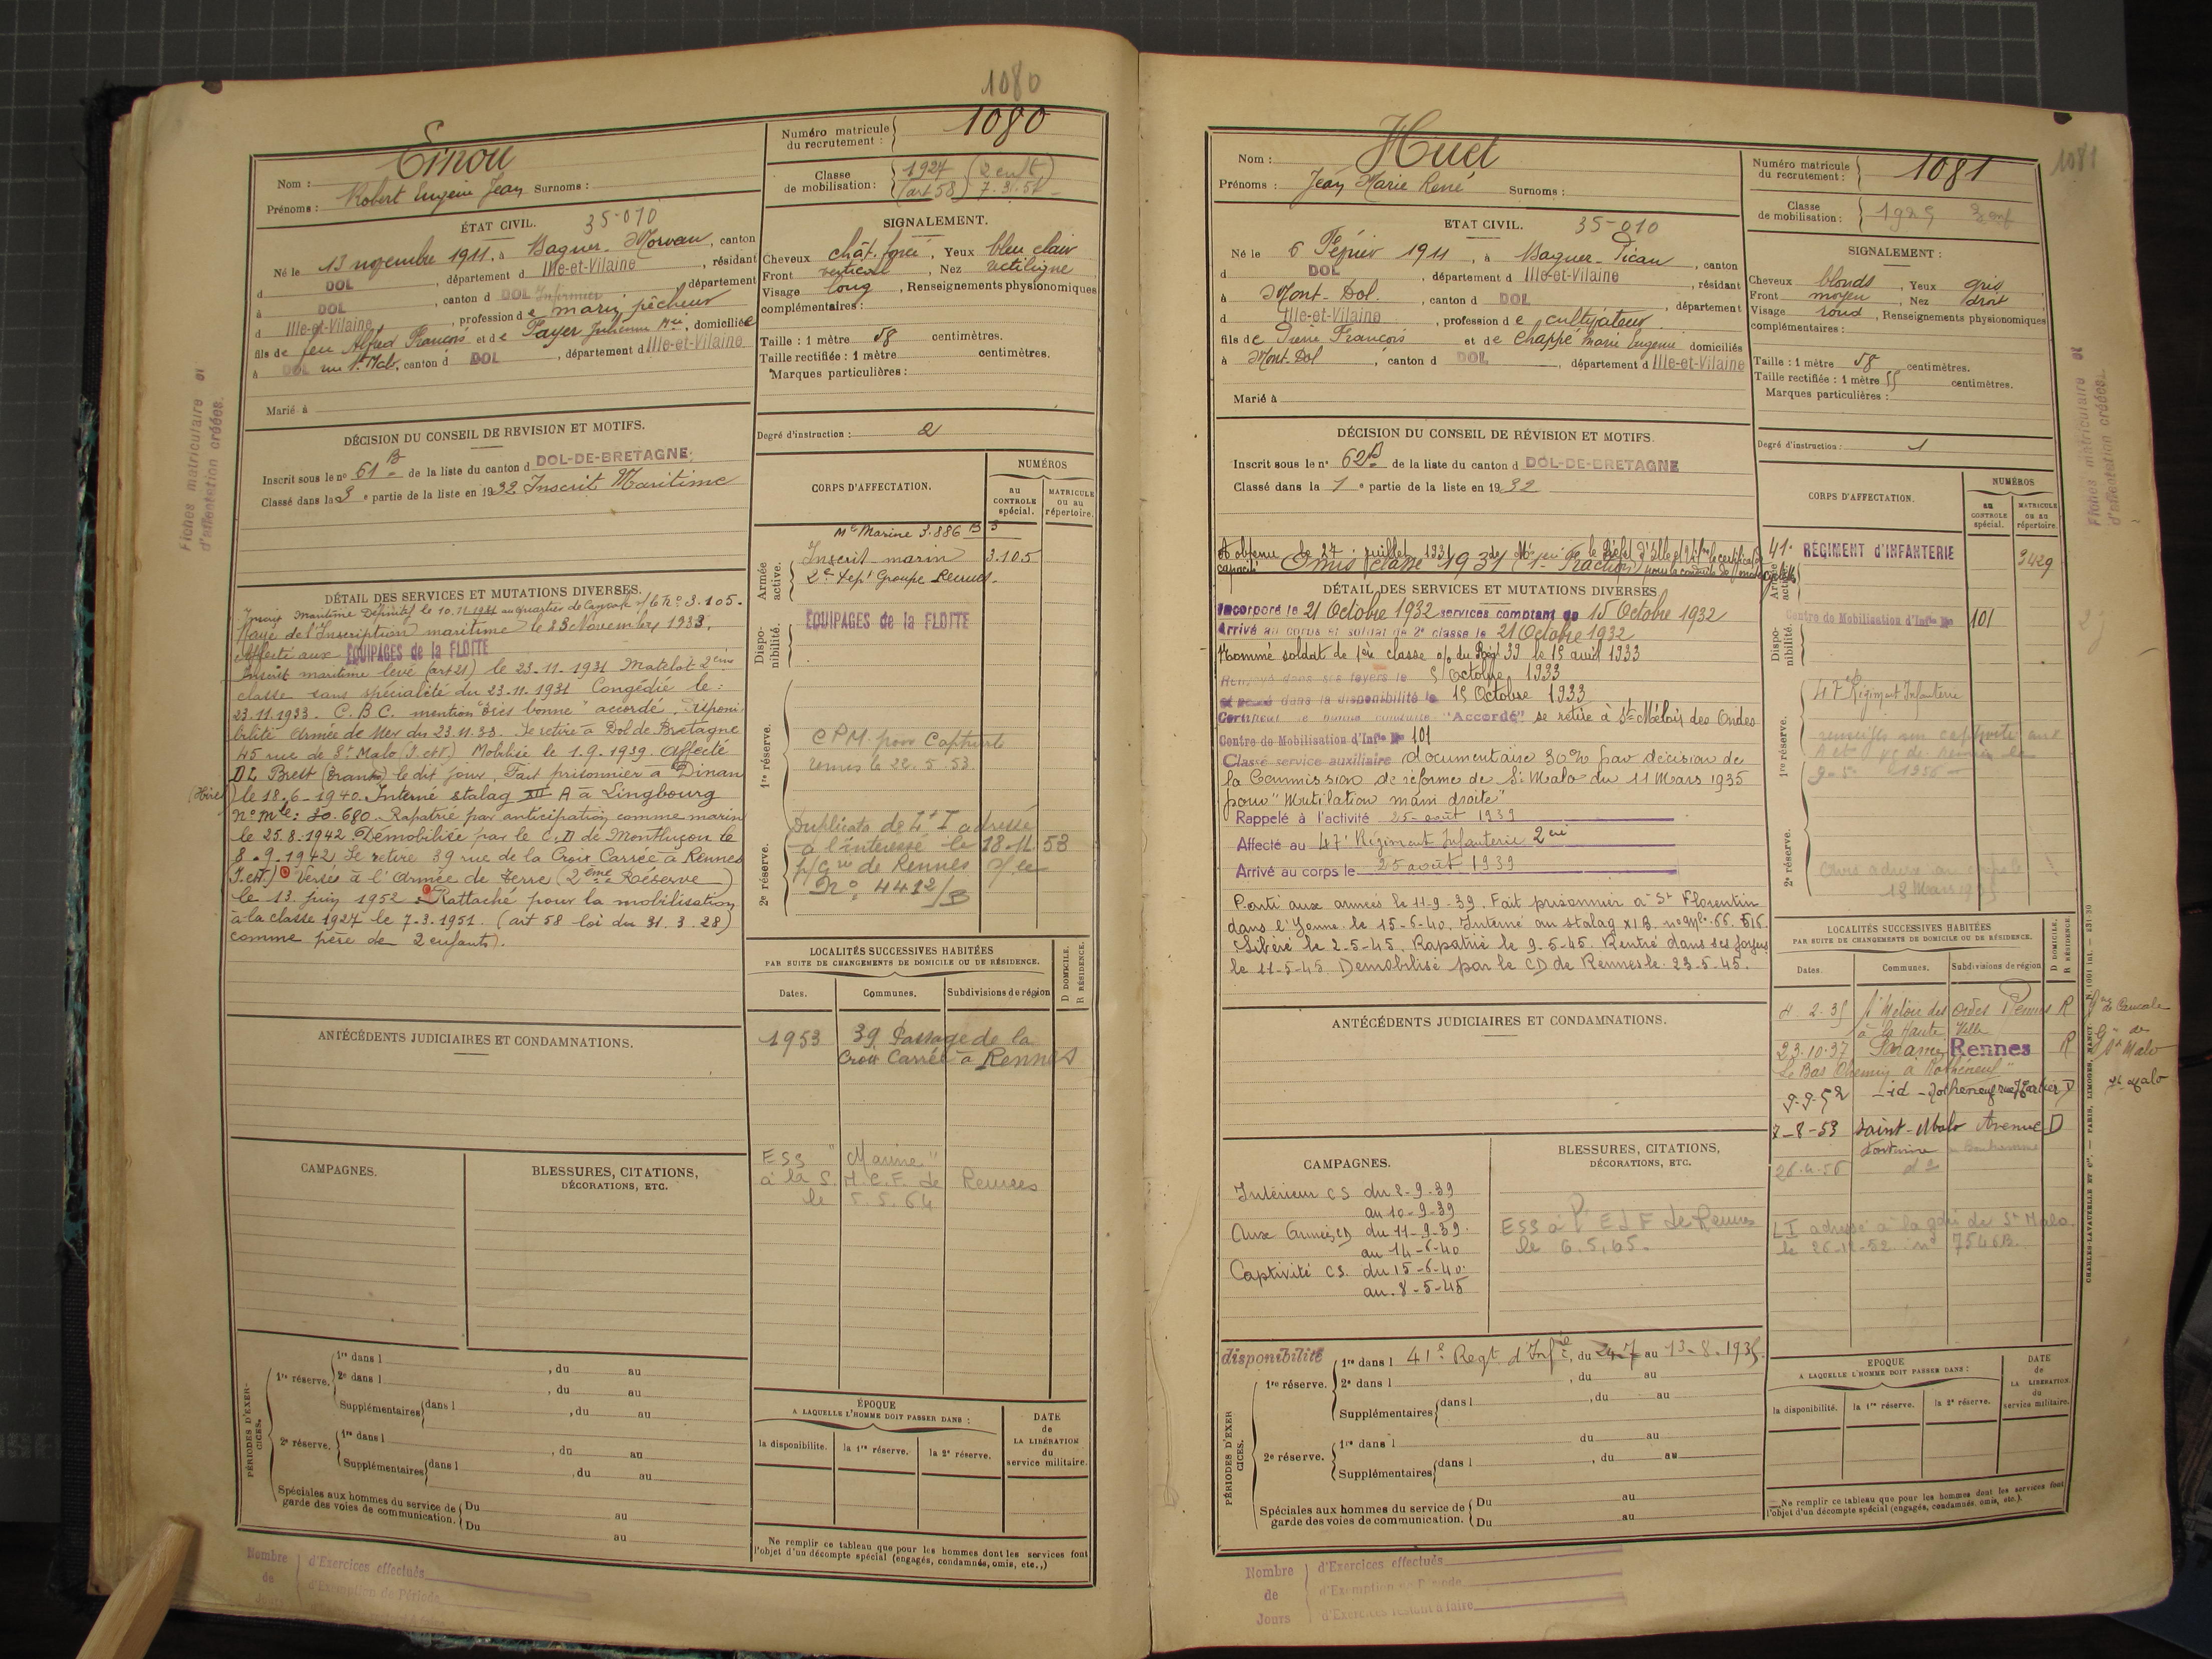 1080
Nom :
Prénoms : Robert Eugène Jean Surnoms :
Numéro matricule du recrutement : 1080
Classe de mobilisation : 1924 (2 enfts)
(art 58) 7.3.51
ÉTAT CIVIL. 35-010
Né le 13 novembre 1911, à Baguer-Morvan, canton
d DOL, département d Ille-et-Vilaine, résidant
à DOL, canton d DOL, département
d Ille-et-Vilaine, profession de marin pêcheur
fils de feu Alfred François et de Payer Julienne Mie, domiciliée
à DOL rue St Malo, canton d DOL, département d Ille-et-Vilaine
Marié à
SIGNALEMENT.
Cheveux chât. foncé, Yeux bleu clair
Front vertical, Nez rectiligne
Visage long, Renseignements physionomiques
complémentaires :
Taille : 1 mètre 58 centimètres.
Taille rectifiée : 1 mètre centimètres.
Marques particulières :
Degré d'instruction : 2
DÉCISION DU CONSEIL DE REVISION ET MOTIFS.
Inscrit sous le no 61 B de la liste du canton d DOL-DE-BRETAGNE
Classé dans la 3e partie de la liste en 1932 Inscrit Maritime
CORPS D'AFFECTATION.
NUMÉROS
au CONTROLE spécial.
MATRICULE ou au répertoire.
Mle Marine 3.886 B 3
Armée active.
Inscrit marin 3.105
2e Dépt Groupe Recrut.
Disponibilité.
ÉQUIPAGES de la FLOTTE
1re réserve.
Rennes le 22.5.53
2e réserve.
Duplicata de L+I adressé
à l'intéressé le 18-11 53
p/Gie de Rennes s/ le
No 4412/B
DÉTAIL DES SERVICES ET MUTATIONS DIVERSES.
Inscrit Maritime Définitif le 10.11.1931 au quartier de Cancale s/ le no 3.105.
Rayé de l'Inscription maritime le 23 Novembre 1933.
Affecté aux ÉQUIPAGES de la FLOTTE
Inscrit maritime levé (art 21) le 23-11-1931 Matelot 2ème
classe sans spécialité du 23.11.1931 Congédié le :
23.11.1933. C.B.C. mention "très bonne" accordé. Disponi-
bilité Armée de Mer du 23.11.33. Se retire à Dol de Bretagne
45 rue de St Malo (I. et V.) Mobilisé le 1.9.1939. Affecté
DL Brest (Branté) le dit jour. Fait prisonnier à Dinan
le 18-6-1940. Interné stalag XII A à Lingbourg
no mle : 30.680. Rapatrié par anticipation comme marin
le 25.8.1942 Démobilisé par le C.D de Montluçon le
8-9-1942 Se retire 39 rue de la Croix Carrée à Rennes
I. et V.) Versé à l'Armée de Terre (2ème Réserve)
le 13 juin 1952. Rattaché pour la mobilisation
à la classe 1924 le 7.3.1951. (art 58 loi du 31.3.28)
comme père de 2 enfants.
ANTÉCÉDENTS JUDICIAIRES ET CONDAMNATIONS.
LOCALITÉS SUCCESSIVES HABITÉES
PAR SUITE DE CHANGEMENTS DE DOMICILE OU DE RÉSIDENCE.
D DOMICILE.
R RÉSIDENCE.
Dates. Communes. Subdivisions de région
1953 39 Passage de la
Croix Carrée à Rennes
ESS "Marine"
à la S.M.C.F. de Rennes
le 5.5.64
CAMPAGNES.
BLESSURES, CITATIONS, DÉCORATIONS, ETC.
PÉRIODES D'EXERCICES.
1re réserve. 1re dans l , du au
2e dans l , du au
Supplémentaires dans l , du au
2e réserve. 1re dans l , du au
Supplémentaires dans l , du au
Spéciales aux hommes du service de garde des voies de communication. Du au
Du au
ÉPOQUE
A LAQUELLE L'HOMME DOIT PASSER DANS :
la disponibilité. la 1re réserve. la 2e réserve.
DATE de LA LIBÉRATION du service militaire.
Ne remplir ce tableau que pour les hommes dont les services font
l'objet d'un décompte spécial (engagés, condamnés, omis, etc.,)
Nombre de
d'Exercices effectués
d'Exemption de Période
Fiches matriculaire et
d'affectation créées.
1081
Nom : Huet
Prénoms : Jean Marie René Surnoms :
Numéro matricule du recrutement : 1081
Classe de mobilisation : 1925
ETAT CIVIL. 35-010
Né le 6 Février 1911, à Baguer-Pican, canton
d DOL, département d Ille-et-Vilaine, résidant
à Mont-Dol, canton d DOL, département
d Ille-et-Vilaine, profession de cultivateur
fils de Pierre François et de Chappé Marie Eugénie domiciliés
à Mont-Dol, canton d DOL, département d Ille-et-Vilaine
Marié à
SIGNALEMENT :
Cheveux blonds, Yeux gris
Front moyen, Nez droit
Visage rond, Renseignements physionomiques
complémentaires :
Taille : 1 mètre 58 centimètres.
Taille rectifiée : 1 mètre 55 centimètres.
Marques particulières :
Degré d'instruction : 1
DÉCISION DU CONSEIL DE RÉVISION ET MOTIFS.
Inscrit sous le no 62 B de la liste du canton d DOL-DE-BRETAGNE
Classé dans la 1e partie de la liste en 1932
A obtenu le 27 juillet 1931
Omis classe 1931 (1e Fraction)
CORPS D'AFFECTATION.
NUMÉROS
au CONTROLE spécial.
MATRICULE ou au répertoire.
41e RÉGIMENT D'INFANTERIE 3429
Centre de Mobilisation d'Infie No 101
47e Régiment Infanterie
1re réserve.
2e réserve.
DÉTAIL DES SERVICES ET MUTATIONS DIVERSES
Incorporé le 21 Octobre 1932 services comptant de 15 Octobre 1932
Arrivé au corps et soldat de 2e classe le 21 Octobre 1932
Nommé soldat de 1ère classe o/ du Régt 39 le 15 avril 1933
Renvoyé dans ses foyers le 5 Octobre 1933
et passé dans la disponibilité le 15 Octobre 1933
Certificat de bonne conduite "Accordé" se retire à St Méloir des Ondes
Centre de Mobilisation d'Infie No 101
Classé service auxiliaire documentaire 30% par décision de
la Commission de réforme de St Malo du 11 Mars 1935
pour "Mutilation main droite"
Rappelé à l'activité 25 août 1939
Affecté au 47e Régiment Infanterie
Arrivé au corps le 25 août 1939
Parti aux armées le 11-9-39. Fait prisonnier à St Florentin
dans l'Yonne le 15-6-40. Interné au stalag XI B. no Mle. 66.516.
Libéré le 2-5-45. Rapatrié le 9-5-45. Rentré dans ses foyers
le 11-5-45. Démobilisé par le CD de Rennes le 23-5-45.
ANTÉCÉDENTS JUDICIAIRES ET CONDAMNATIONS.
LOCALITÉS SUCCESSIVES HABITÉES
PAR SUITE DE CHANGEMENTS DE DOMICILE OU DE RÉSIDENCE.
D DOMICILE.
R RÉSIDENCE.
Dates. Communes. Subdivisions de région
4.2.35 St Méloir des Ondes Rennes R
à la Haute Ville
23.10.37 Paramé Rennes R
Le Bas Chemin à Rothéneuf
9-9-52 -id- Rothéneuf rue J Cartier D
7-8-53 Saint-Malo Avenue D
26.4.56 do
LI adressé à la gdie de St Malo.
le 26-12-52 no 7546B.
CAMPAGNES.
Intérieur CS du 2-9-39
au 10-9-39
Aux Armées CD du 11-9-39
au 14-6-40
Captivité CS. du 15-6-40
au 8-5-45
BLESSURES, CITATIONS, DÉCORATIONS, ETC.
ESS à l'EDF de Rennes
le 6.5.65.
PÉRIODES D'EXERCICES.
disponibilité 1re dans l 41e Regt d'Infie, du 24-7 au 13-8-1935.
1re réserve. 2e dans l , du au
Supplémentaires dans l , du au
2e réserve. 1re dans l du au
Supplémentaires dans l , du au
Spéciales aux hommes du service de garde des voies de communication. Du au
Du au
EPOQUE
A LAQUELLE L'HOMME DOIT PASSER DANS :
la disponibilité. la 1re réserve. la 2e réserve.
DATE de LA LIBÉRATION du service militaire.
Ne remplir ce tableau que pour les hommes dont les services font
l'objet d'un décompte spécial (engagés, condamnés, omis, etc.).
Nombre de Jours
d'Exercices effectués
d'Exemption de Période
d'Exercices restant à faire
Fiches matriculaire et
d'affectation créées.
CHARLES-LAVAUZELLE ET Cie. — PARIS, LIMOGES, NANCY.